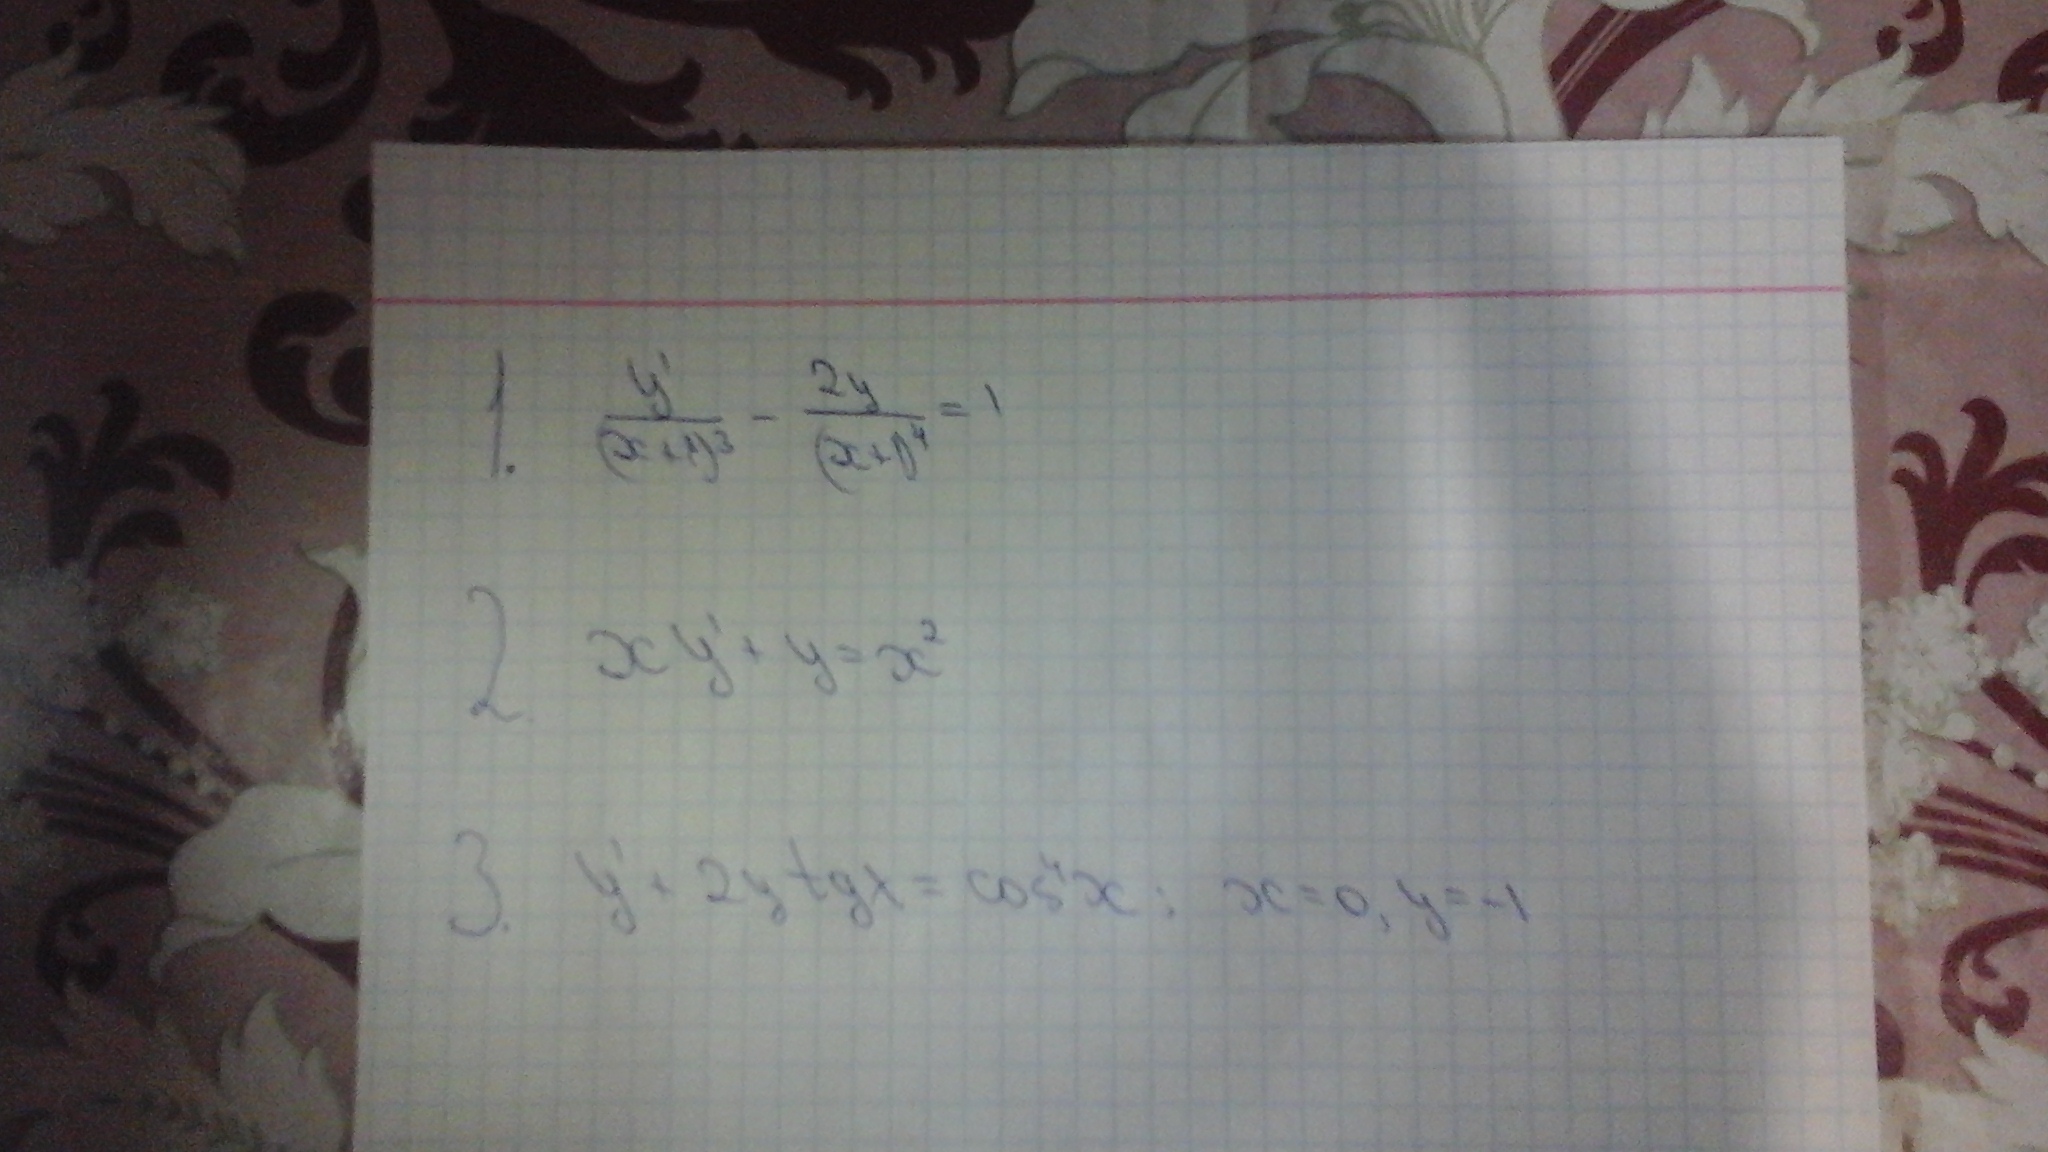 1. y'/(x+1)³ - 2y/(x+1)⁴ = 1
2. xy' + y = x²
3. y' + 2y tgx = cos⁴x; x=0, y=-1